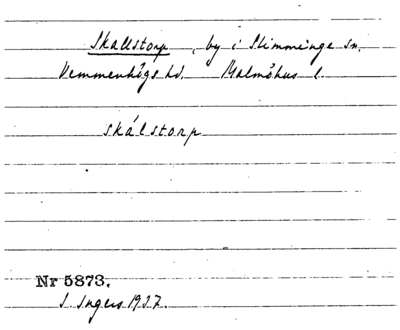 Skallstorp, by i Slimminge sn.
Vemmenhögs hd. Malmöhus l.
skálstorp
Nr 5873.
I. Ingers 1927.